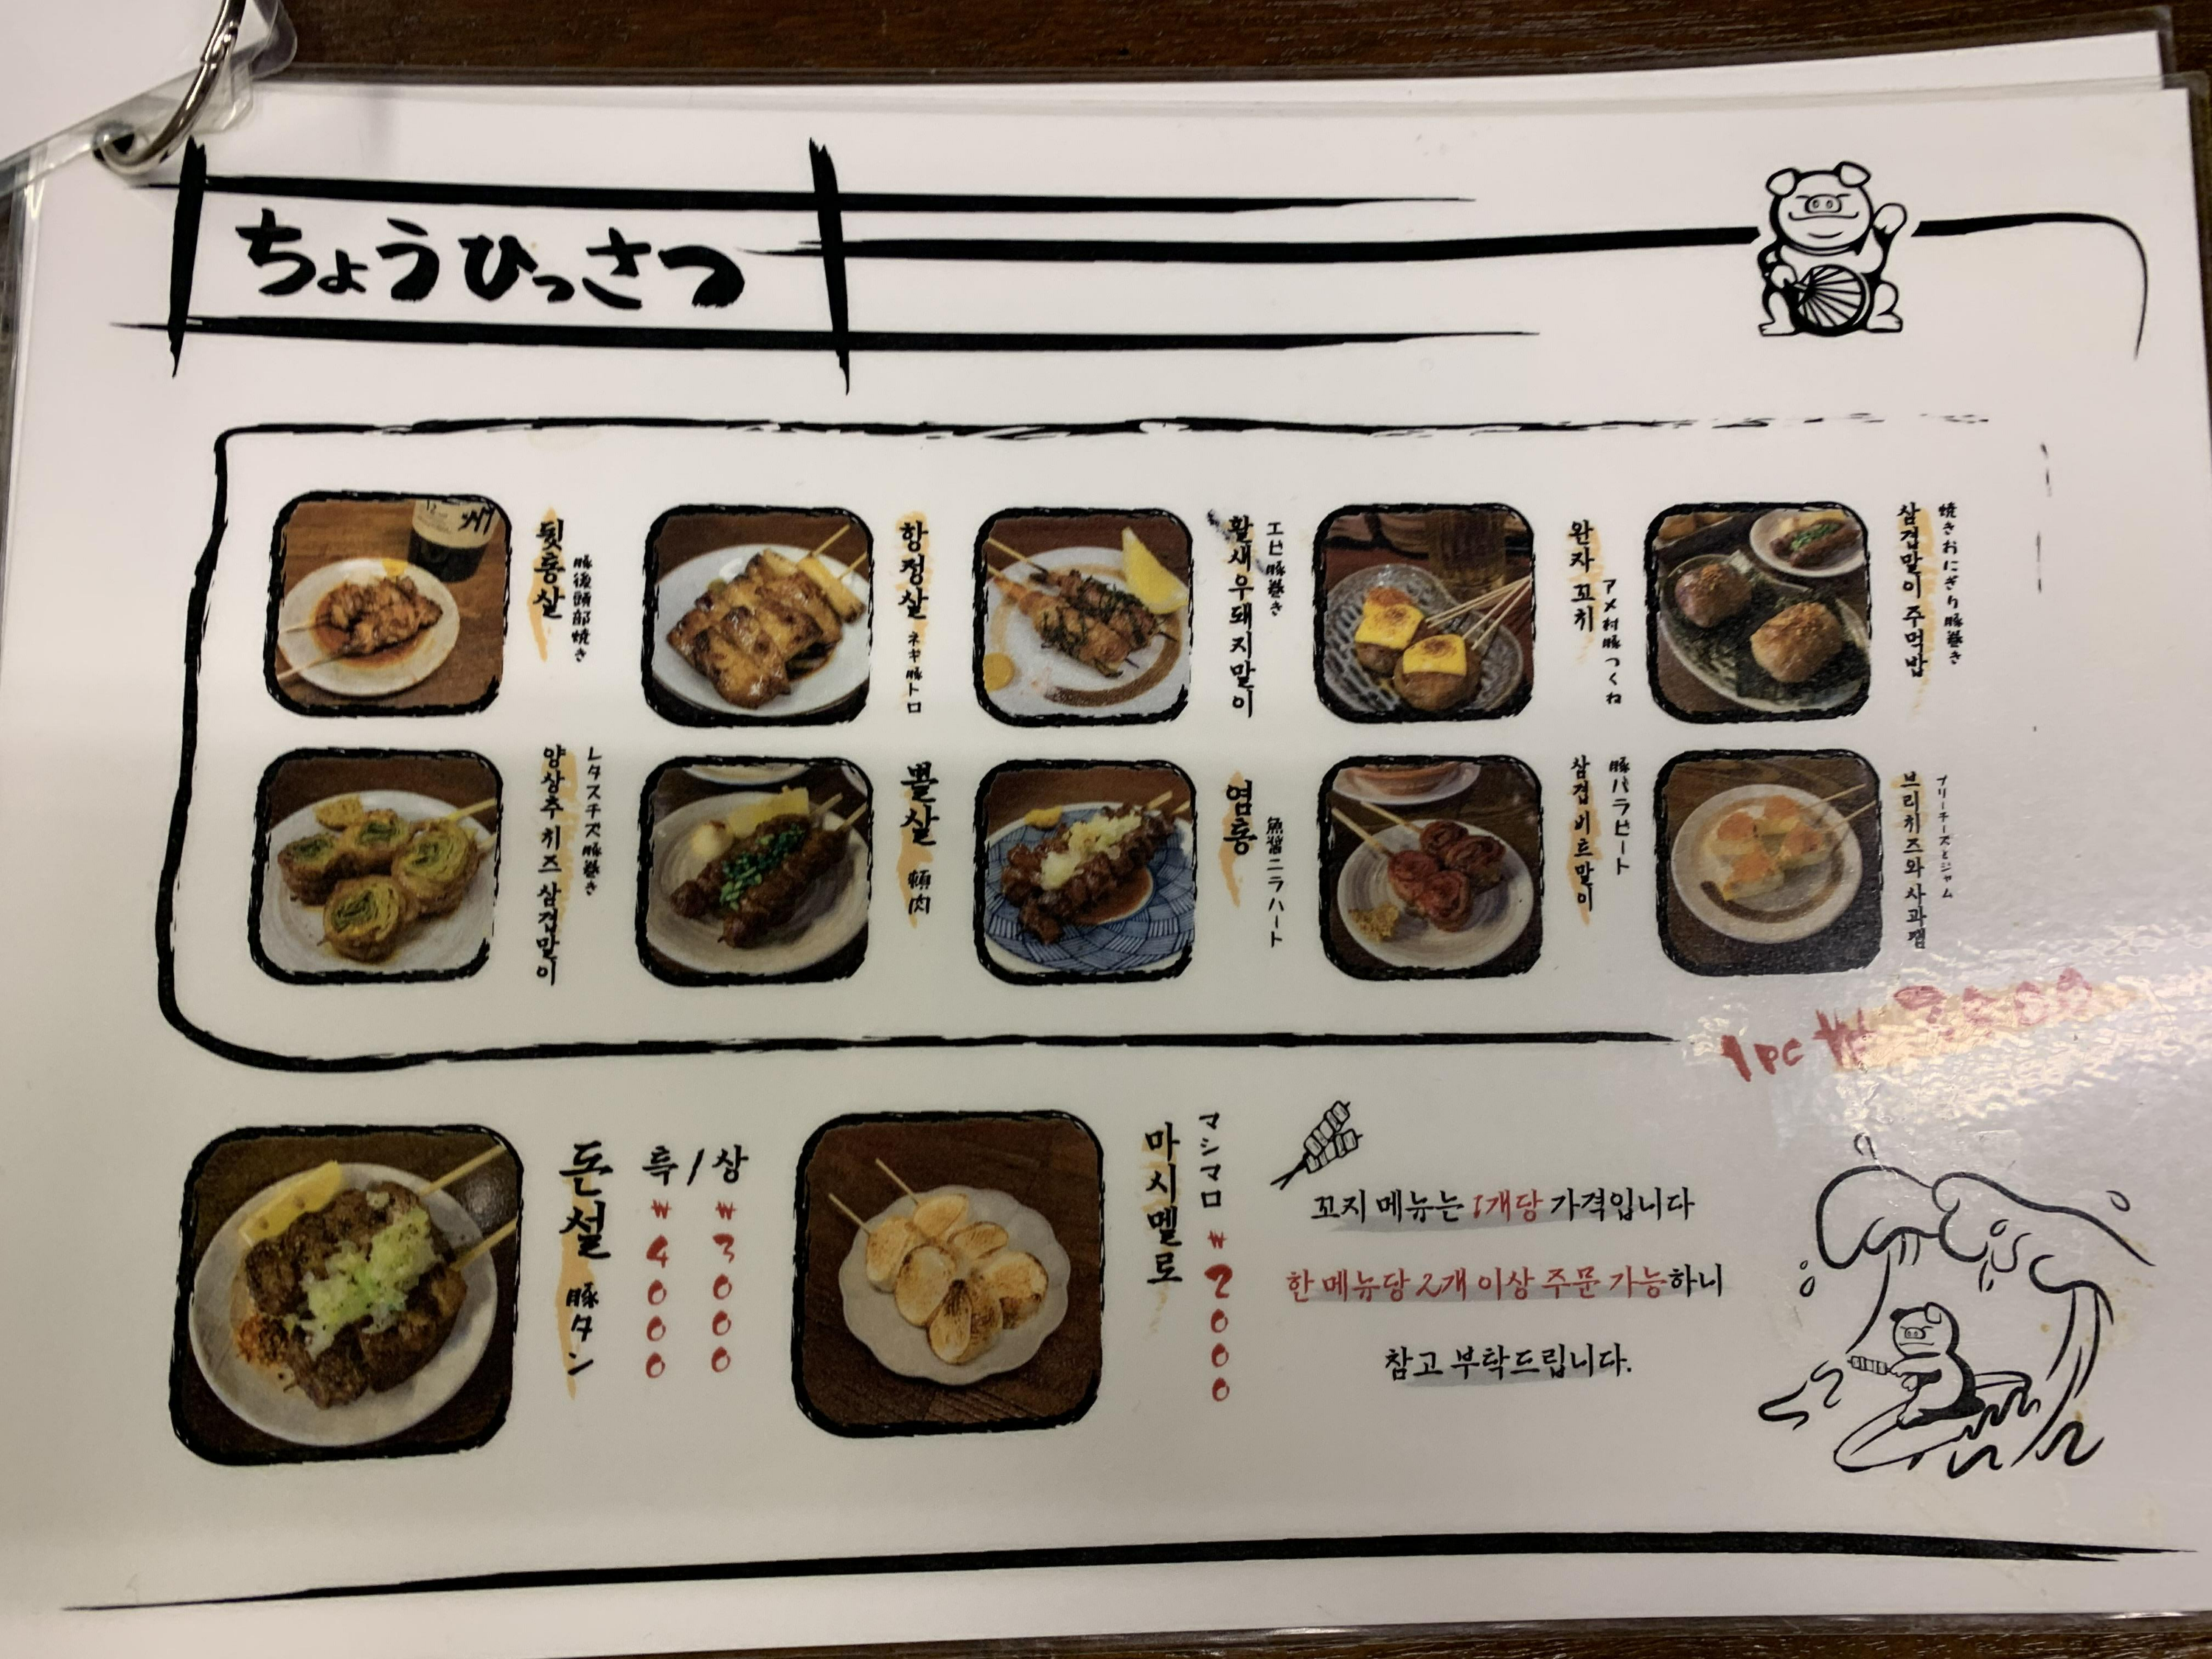 ちょうひっさつ
뒷통살
豚後頭部焼き
항정살
ネギ豚トロ
활새우돼지말이
エビ豚巻き
완자꼬치
アメ村豚つくね
삼겹말이주먹밥
焼きおにぎり豚巻き
양상추치즈삼겹말이
レタスチズ豚巻き
뽈살
頬肉
염통
魚醤ニラハート
삼겹비트말이
豚バラビート
브리치즈와사과잼
ブリーチーズとジャム
1pc ₩
돈설
豚タン
특/상
₩4000
₩3000
마시멜로
マシマロ
₩2000
꼬지 메뉴는 1개당 가격입니다
한 메뉴당 2개 이상 주문 가능하니
참고 부탁드립니다.